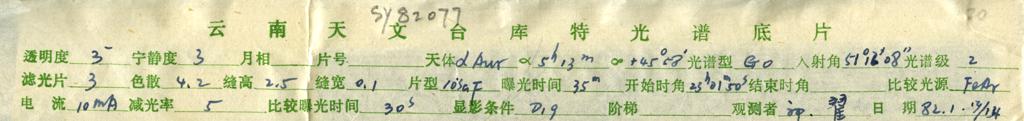 SY82077
云南天文台库特光谱底片
透明度 3 宁静度 3 月相 片号 天体 α Aur α 5h 13m δ +45°58′ 光谱型 G0 入射角 51°16′08″ 光谱级 2
滤光片 3 色散 4.2 缝高 2.5 缝宽 0.1 片型 103aF 曝光时间 35m 开始时角 23h01m50s 结束时角 比较光源 FeAr
电流 10mA 减光率 5 比较曝光时间 30s 显影条件 D19 阶梯 观测者 翟 日期 82.1.13/14